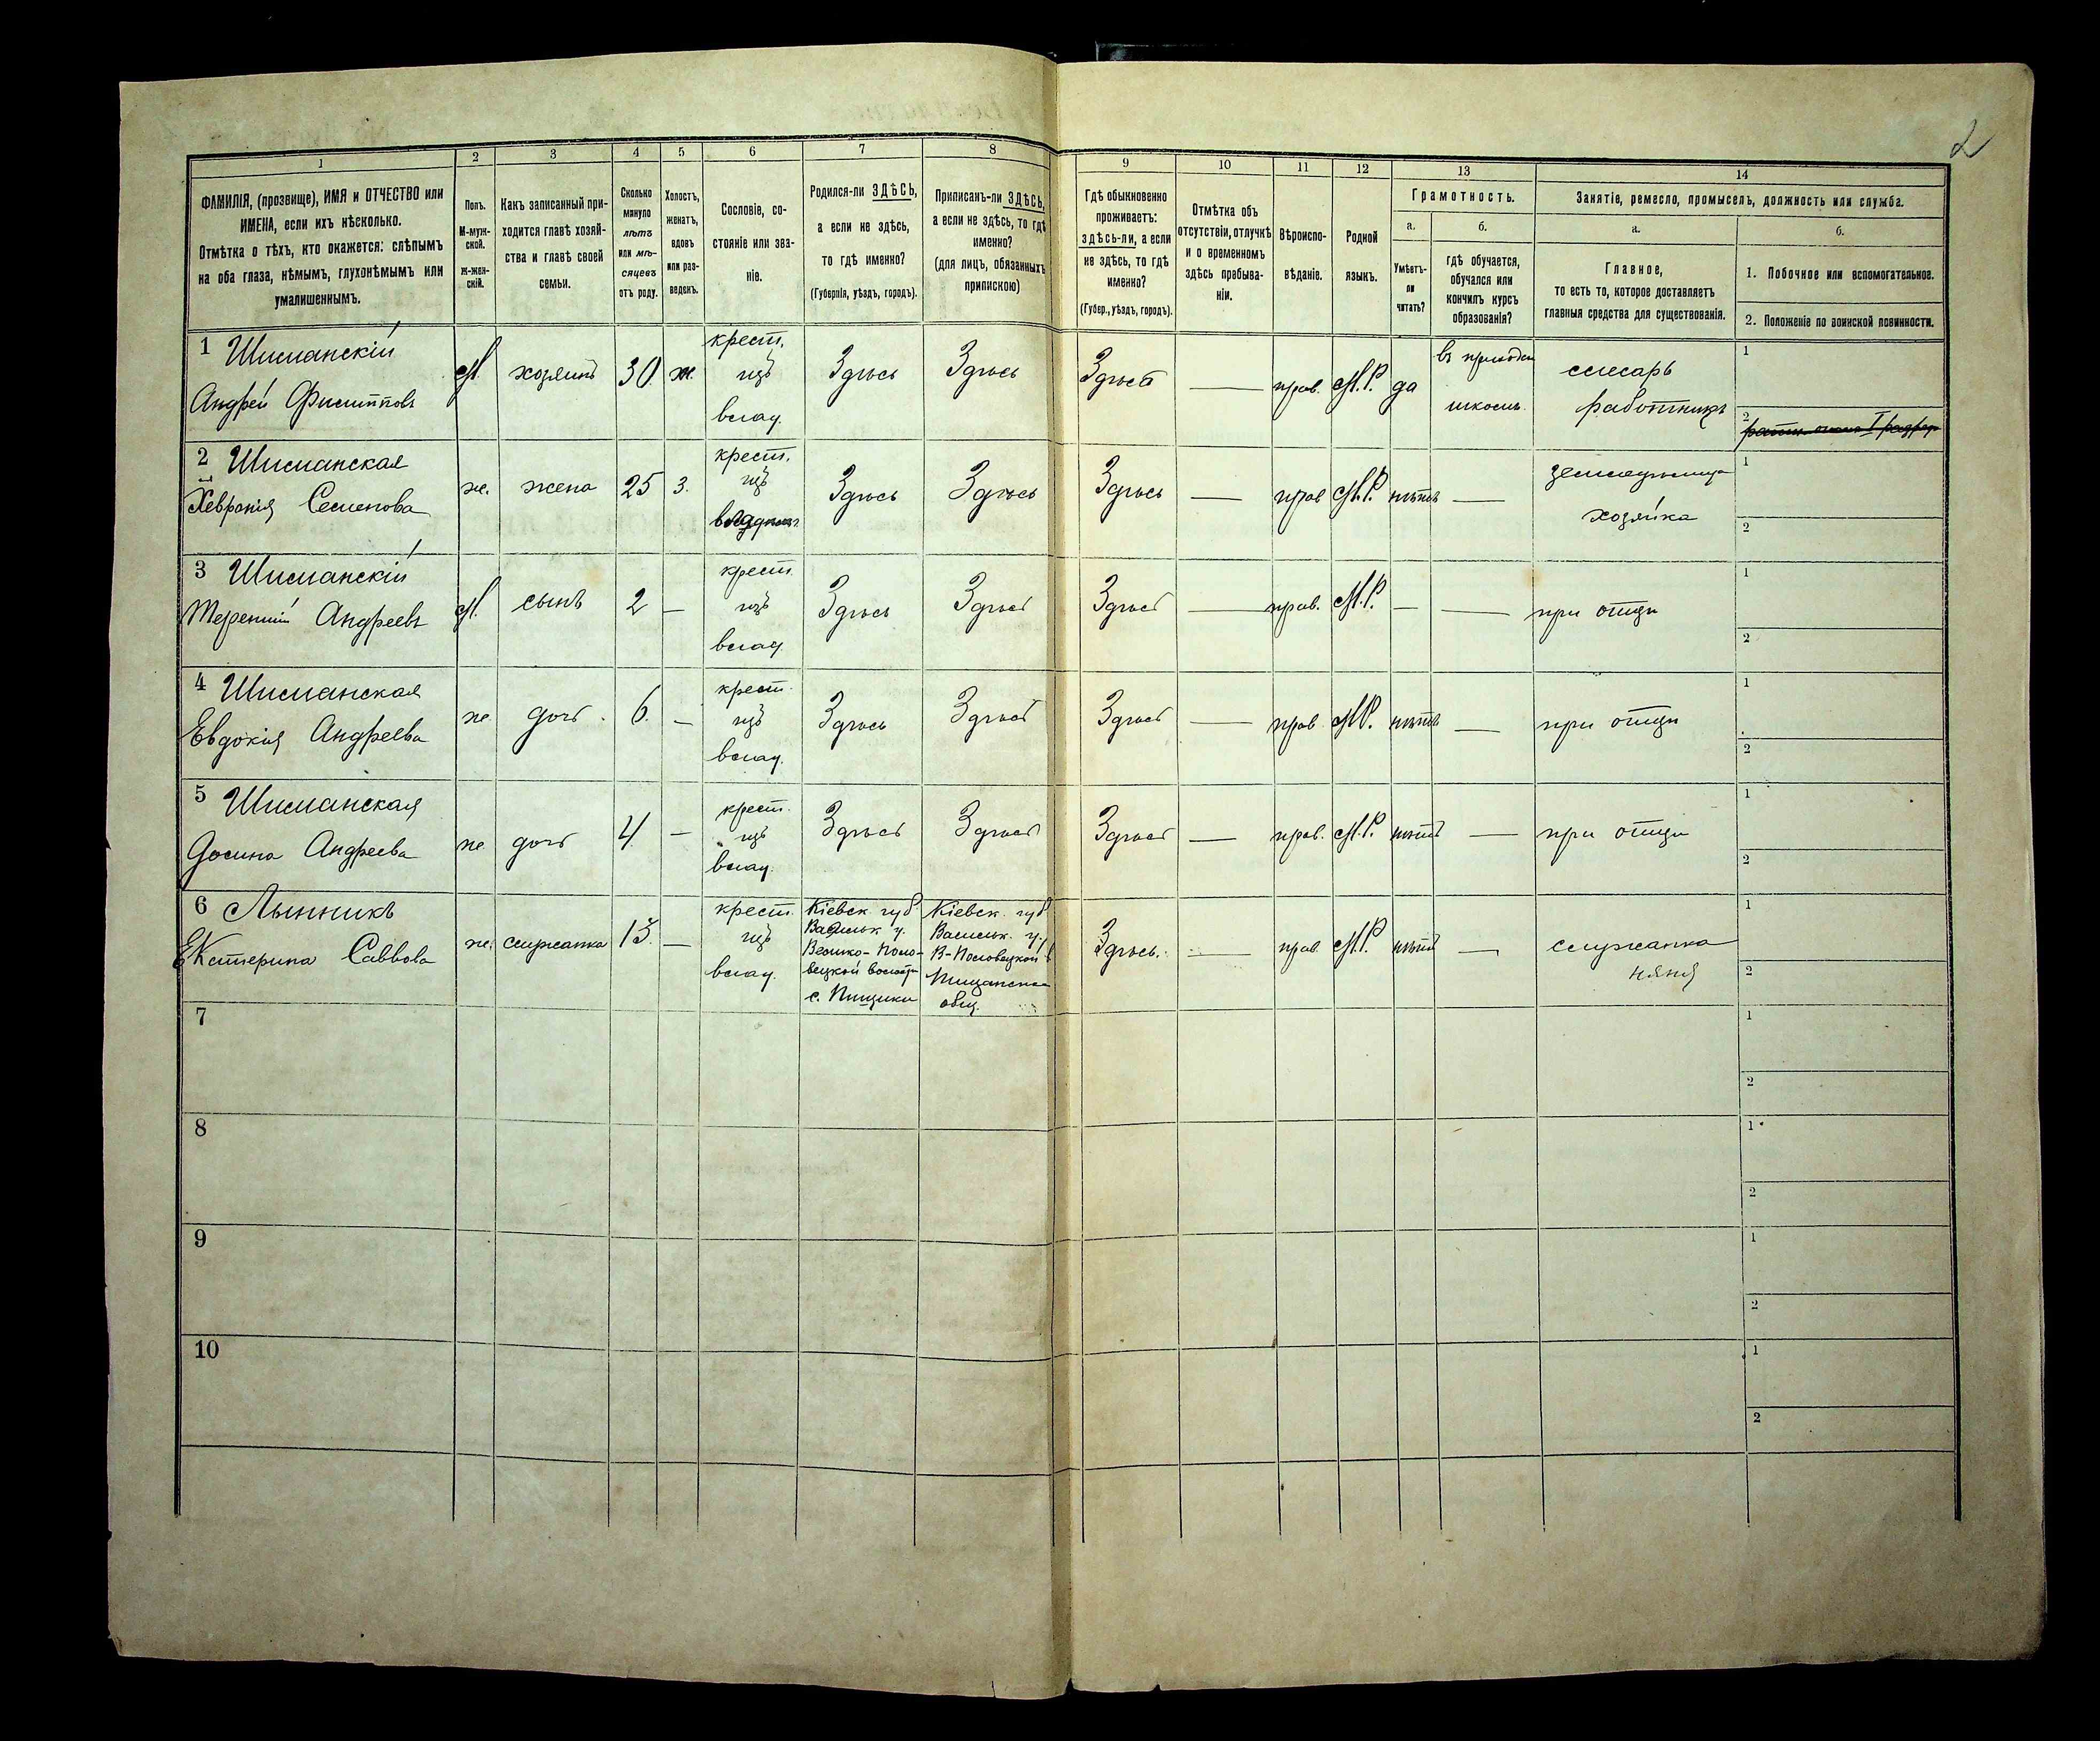 2
1
2
3
4
5
6
7
8
9
10
11
12
13
14
ФАМИЛІЯ, (прозвище), ИМЯ и ОТЧЕСТВО или
ИМЕНА, если ихъ нѣсколько.
Отмѣтка о тѣхъ, кто окажется: слѣпымъ
на оба глаза, нѣмымъ, глухонѣмымъ или
умалишеннымъ.
Полъ.
М-муж-
ской.
ж-жен-
скій.
Какъ записанный при-
ходится главѣ хозяй-
ства и главѣ своей
семьи.
Сколько
минуло
лѣтъ
или мѣ-
сяцевъ
отъ роду.
Холостъ,
женатъ,
вдовъ
или раз-
веденъ.
Сословіе, со-
стояніе или зва-
ніе.
Родился-ли ЗДѢСЬ,
а если не здѣсь,
то гдѣ именно?
(Губернія, уѣздъ, городъ).
Приписанъ-ли ЗДѢСЬ,
а если не здѣсь, то гдѣ
именно?
(для лицъ, обязанныхъ
припискою)
Гдѣ обыкновенно
проживаетъ:
здѣсь-ли, а если
не здѣсь, то гдѣ
именно?
(Губер., уѣздъ, городъ).
Отмѣтка объ
отсутствіи, отлучкѣ
и о временномъ
здѣсь пребыва-
ніи.
Вѣроиспо-
вѣданіе.
Родной
языкъ.
Грамотность.
а.
б.
Умѣетъ-
ли
читать?
гдѣ обучается,
обучался или
кончилъ курсъ
образованія?
Занятіе, ремесло, промыселъ, должность или служба.
а.
б.
Главное,
то есть то, которое доставляетъ
главныя средства для существованія.
1. Побочное или вспомогательное.
2. Положеніе по воинской повинности.
1 Шиманскій
Андрей Филипповъ
М. хозяинъ 30 ж.
крест.
изъ
влад.
Здѣсь Здѣсь Здѣсь — прав. М.Р. да
въ приходск
школѣ.
слесарь
работникъ
1
2
2 Шиманская
Хевронія Семенова
ж. жена 25 З.
крест.
изъ
Здѣсь Здѣсь Здѣсь — прав М.Р. нѣтъ —
хозяйка
1
2
3 Шиманскій
Терентій Андреевъ
М. сынъ 2 —
крест.
изъ
влад.
Здѣсь Здѣсь Здѣсь — прав. М.Р. — — при отцѣ
1
2
4 Шиманская
Евдокія Андреева
ж. дочь 6. —
крест.
изъ
влад.
Здѣсь Здѣсь Здѣсь — прав М.Р. нѣтъ — при отцѣ
1
2
5 Шиманская
Андреева
ж дочь 4. —
крест.
изъ
влад.
Здѣсь Здѣсь Здѣсь — прав. М.Р. нѣтъ — при отцѣ
1
2
6 Лынникъ
Екатерина Саввова
ж. служанка 13. —
крест.
изъ
влад.
Кіевск. губ
Васильк у.
Велико-Поло-
вецкой волости
с. Пищики
Кіевск. губ
Васильк. у.
В-Половецкой в
общ.
Здѣсь. — прав М.Р. нѣтъ —
служанка
няня
1
2
7
1
2
8
1
2
9
1
2
10
1
2